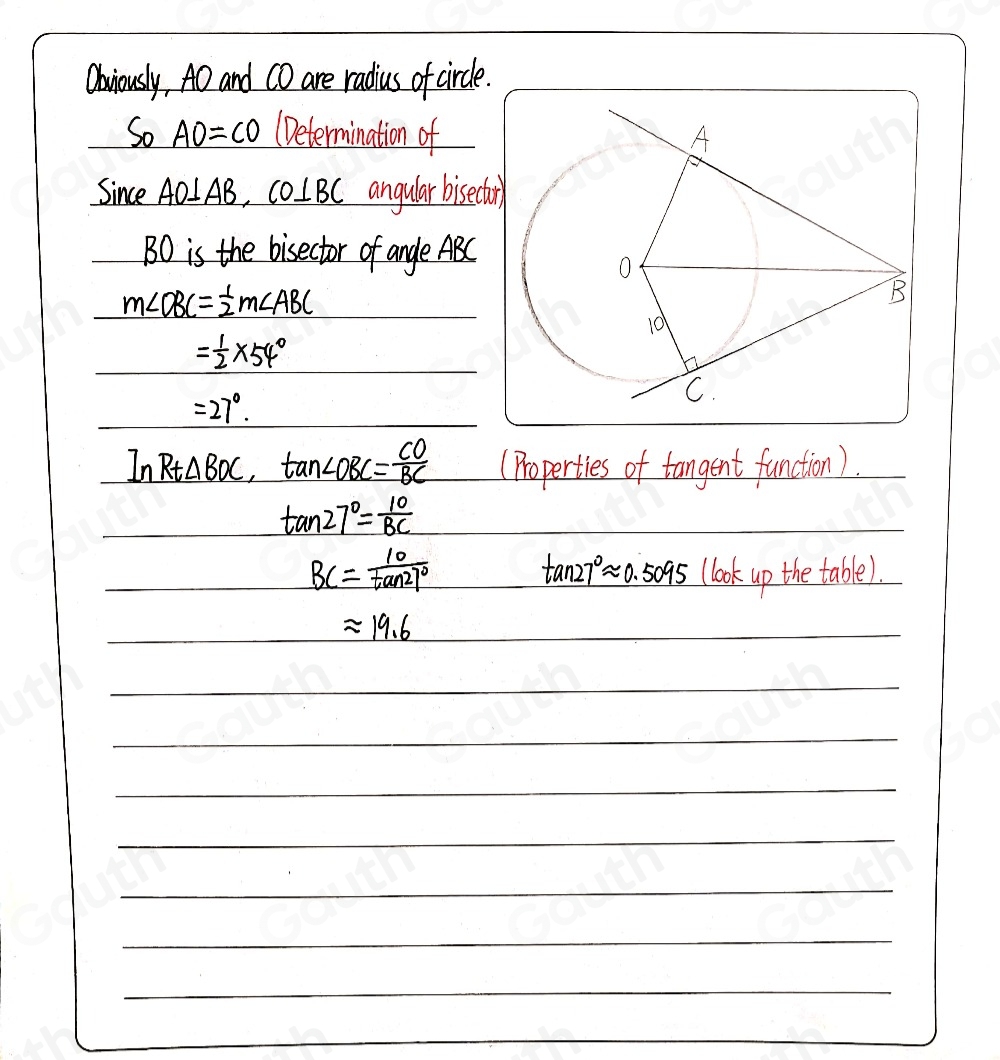 Obviously, AO and CO are radius of circle.
So AO=CO (Determination of
Since AO⊥AB, CO⊥BC angular bisector)
BO is the bisector of angle ABC
m∠OBC=½m∠ABC
=½×54°
=27°.
In Rt△BOC, tan∠OBC=CO/BC (Properties of tangent function).
tan27°=10/BC
BC=10/tan27° tan27°≈0.5095 (look up the table).
≈19.6
A
O
B
10
C.
Gauth